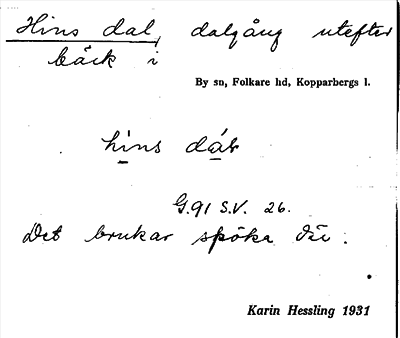 Hins dal, dalgång utefter
bäck i
By sn, Folkare hd, Kopparbergs l.
hins dáɫ
G.91 S.V. 26.
Det brukar spöka där.
Karin Hessling 1931